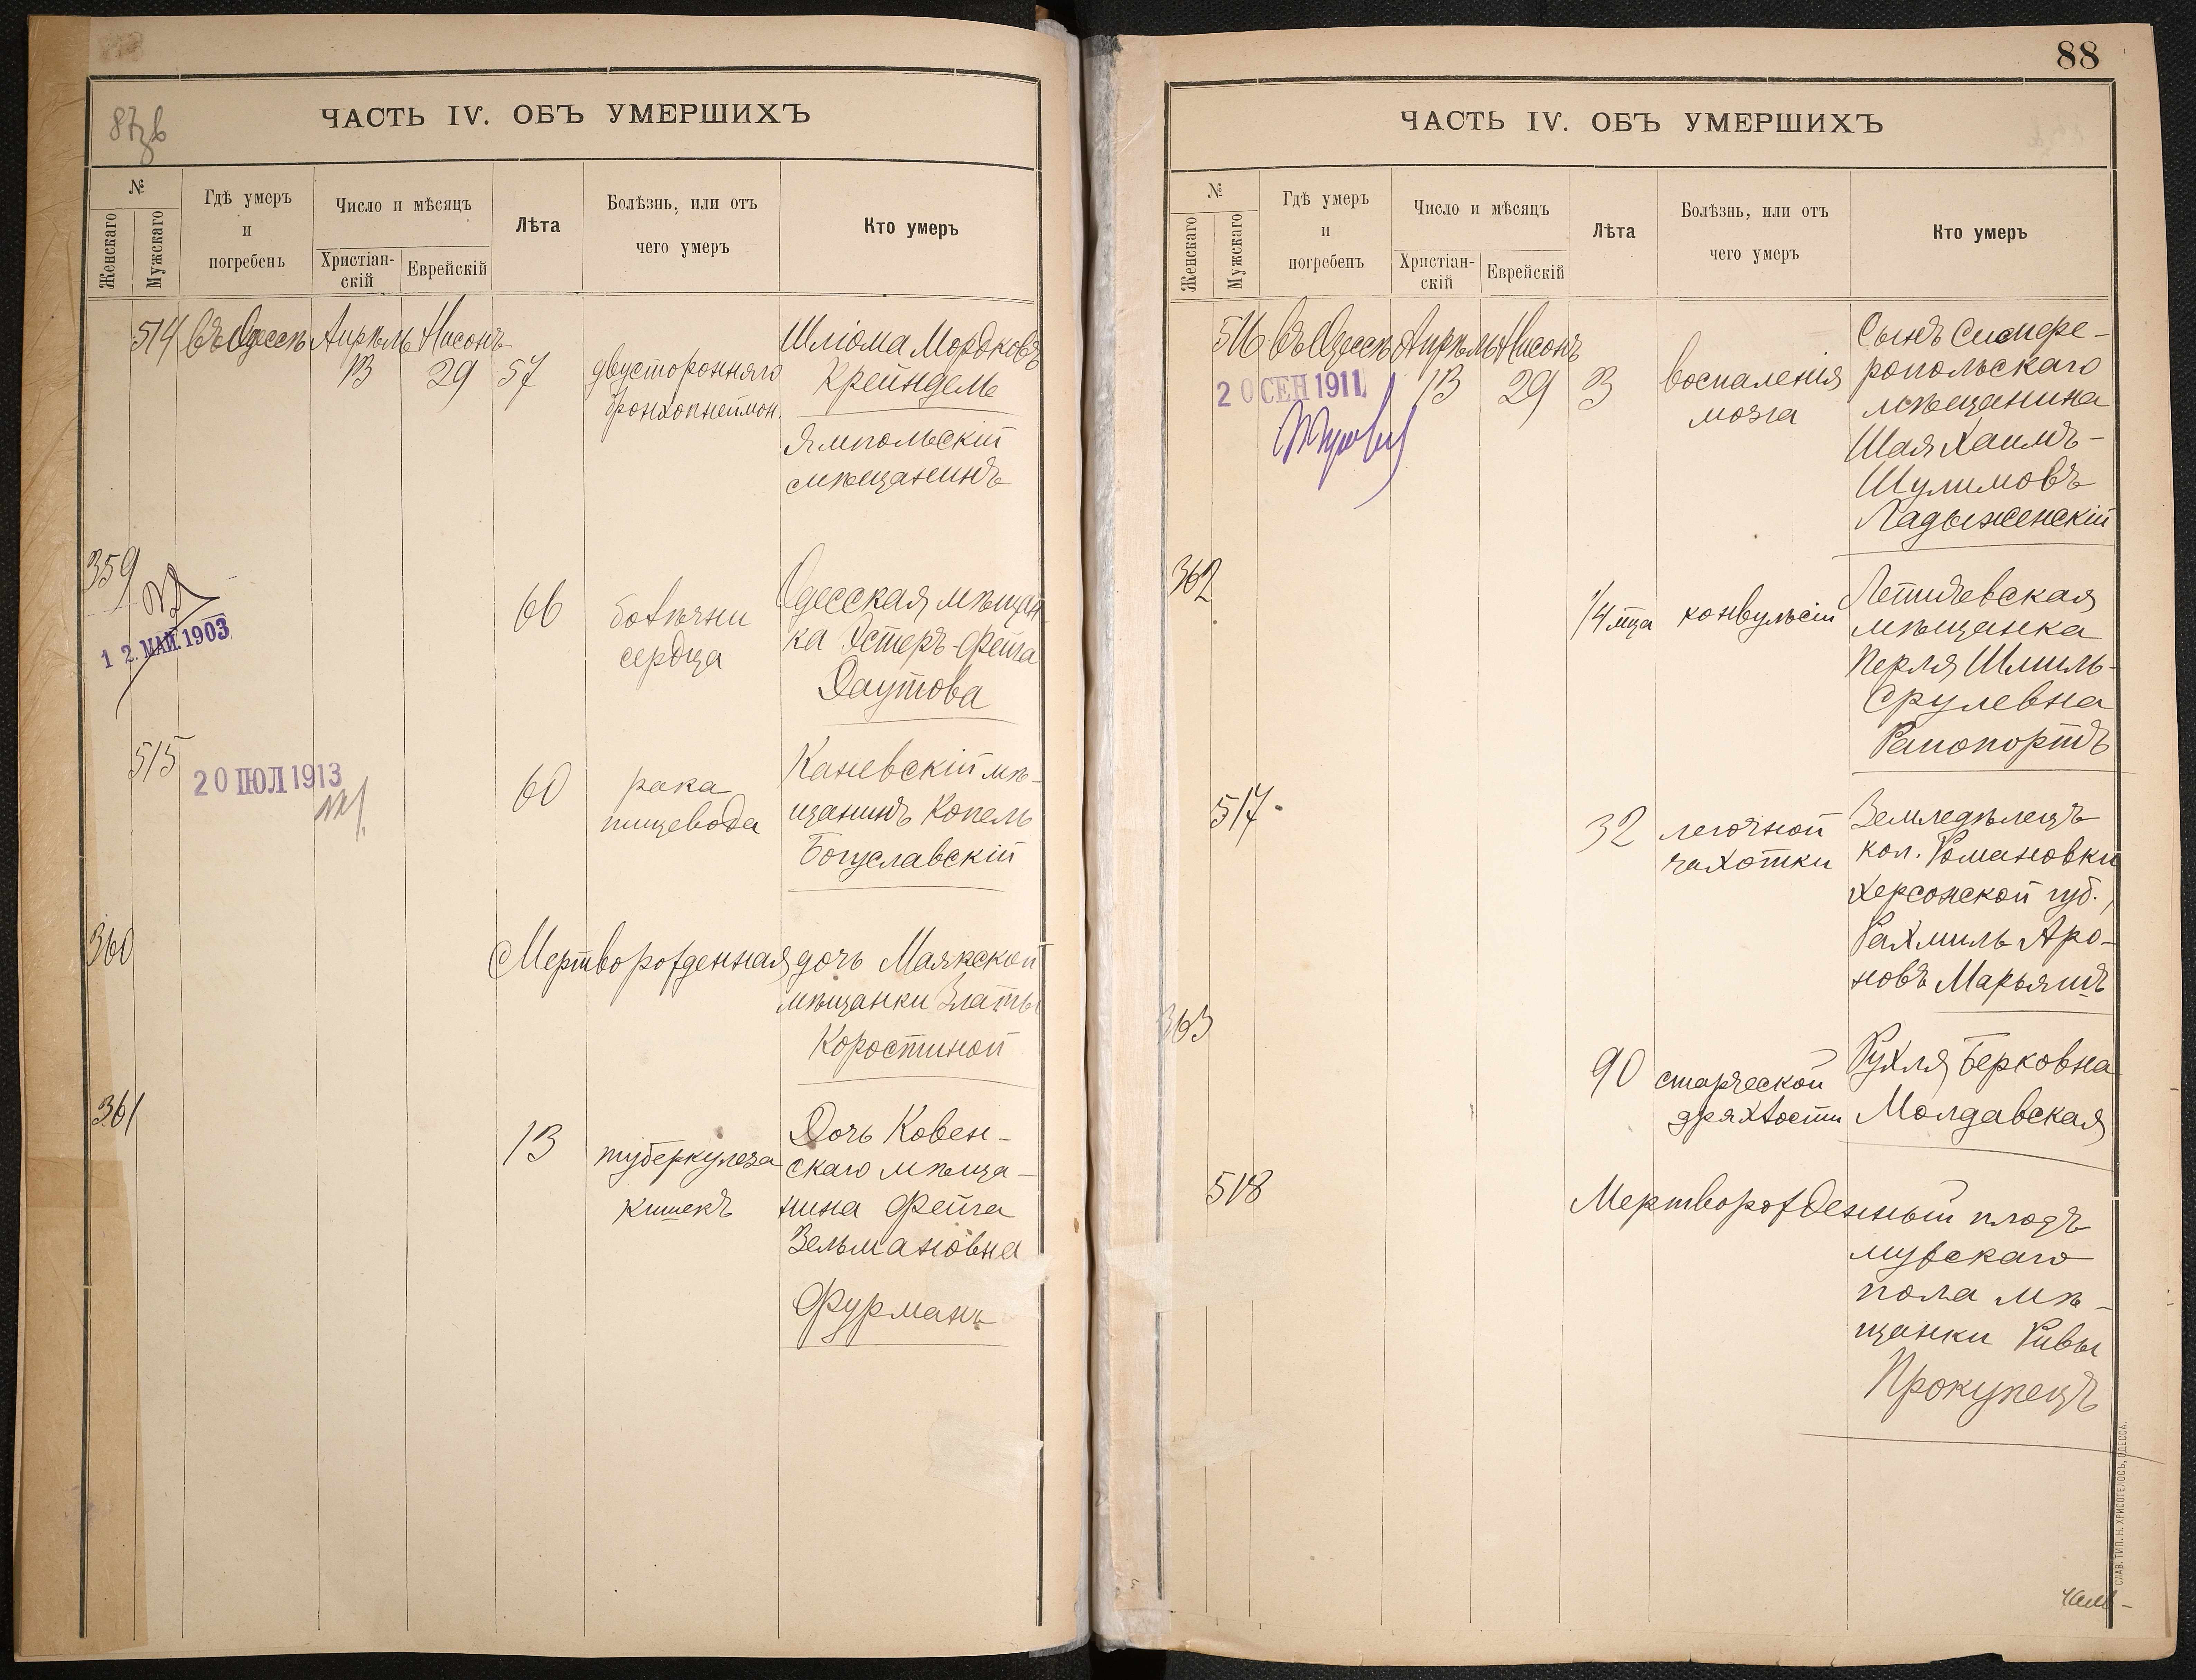 87зв
ЧАСТЬ IV. ОБЪ УМЕРШИХЪ
№
Женскаго
Мужскаго
Гдѣ умеръ
и
погребенъ
Число и мѣсяцъ
Христіан-
скій
Еврейскій
Лѣта
Болѣзнь, или отъ
чего умеръ
Кто умеръ
514 въ Одессѣ Апрѣль Нисонъ
13 29 57
двусторонняго
бронхопнеймон.
Шліома Мордковъ
Крейндель
Ямпольскій
мѣщанинъ
359
12. МАЙ. 1903
66
болѣзни
сердца
Одесская мѣщан-
ка Эстеръ-Фейга
Даутова
515
20 ІЮЛ 1913
60
рака
пищевода
Каневскій мѣ-
щанинъ Копель
Богуславскій
360
Мертворожденная дочь Маякской
мѣщанки Златы
Коростиной
361
13
туберкулеза
кишекъ
Дочь Ковен-
скаго мѣща-
нина Фейга
Зельмановна
Фурманъ
88
ЧАСТЬ IV. ОБЪ УМЕРШИХЪ
№
Женскаго
Мужскаго
Гдѣ умеръ
и
погребенъ
Число и мѣсяцъ
Христіан-
скій
Еврейскій
Лѣта
Болѣзнь, или отъ
чего умеръ
Кто умеръ
516 въ Одессѣ Апрѣль Нисонъ
20 СЕН 1911
13 29 3
воспаленія
мозга
Сынъ Симфе-
ропольскаго
мѣщанина
Шая Хаимъ-
Шулимовъ
Ладыженскій
362
1/4 мца
конвульсій
Летичевская
мѣщанка
Перля Шмиль-
Срулевна
Рапопортъ
517
32
легочной
чахотки
Земледѣлецъ
кол. Романовки
Херсонской губ.,
Рахмиль Аро-
новъ Марьяшъ
363
90
старческой
дряхлости
Рухля Берковна
Молдавская
518
Мертворожденный плодъ
мужскаго
пола мѣ-
щанки Ривы
Прокупецъ
СЛАВ. ТИП. Н. ХРИСОГЕЛОСЪ, ОДЕССА.